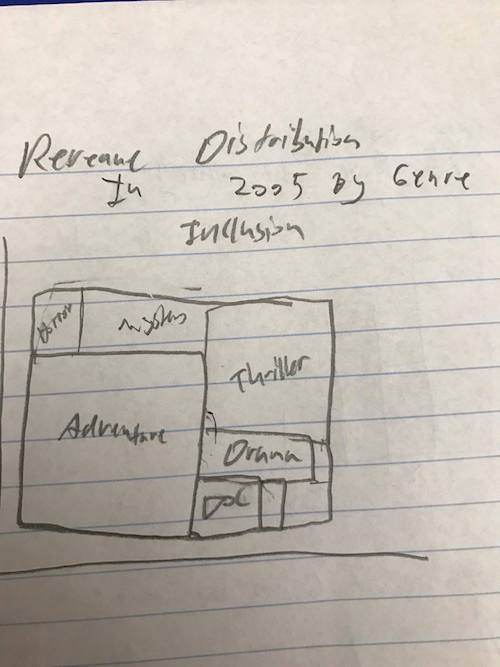 Revenue Distribution
In 2005 By Genre
Inclusion
Horror
Mystery
Thriller
Adventure
Drama
Doc